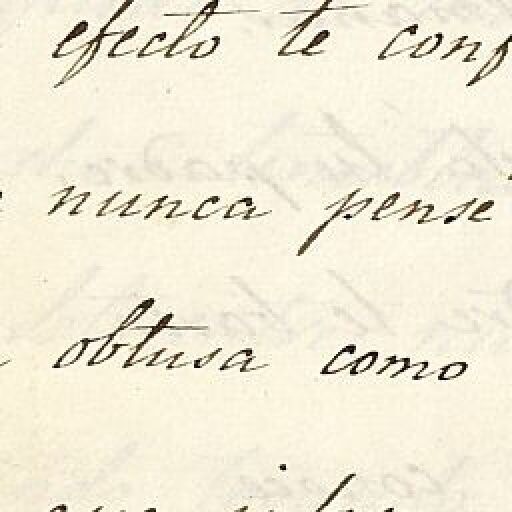 efecto te conf
nunca pensé
obtusa como
que